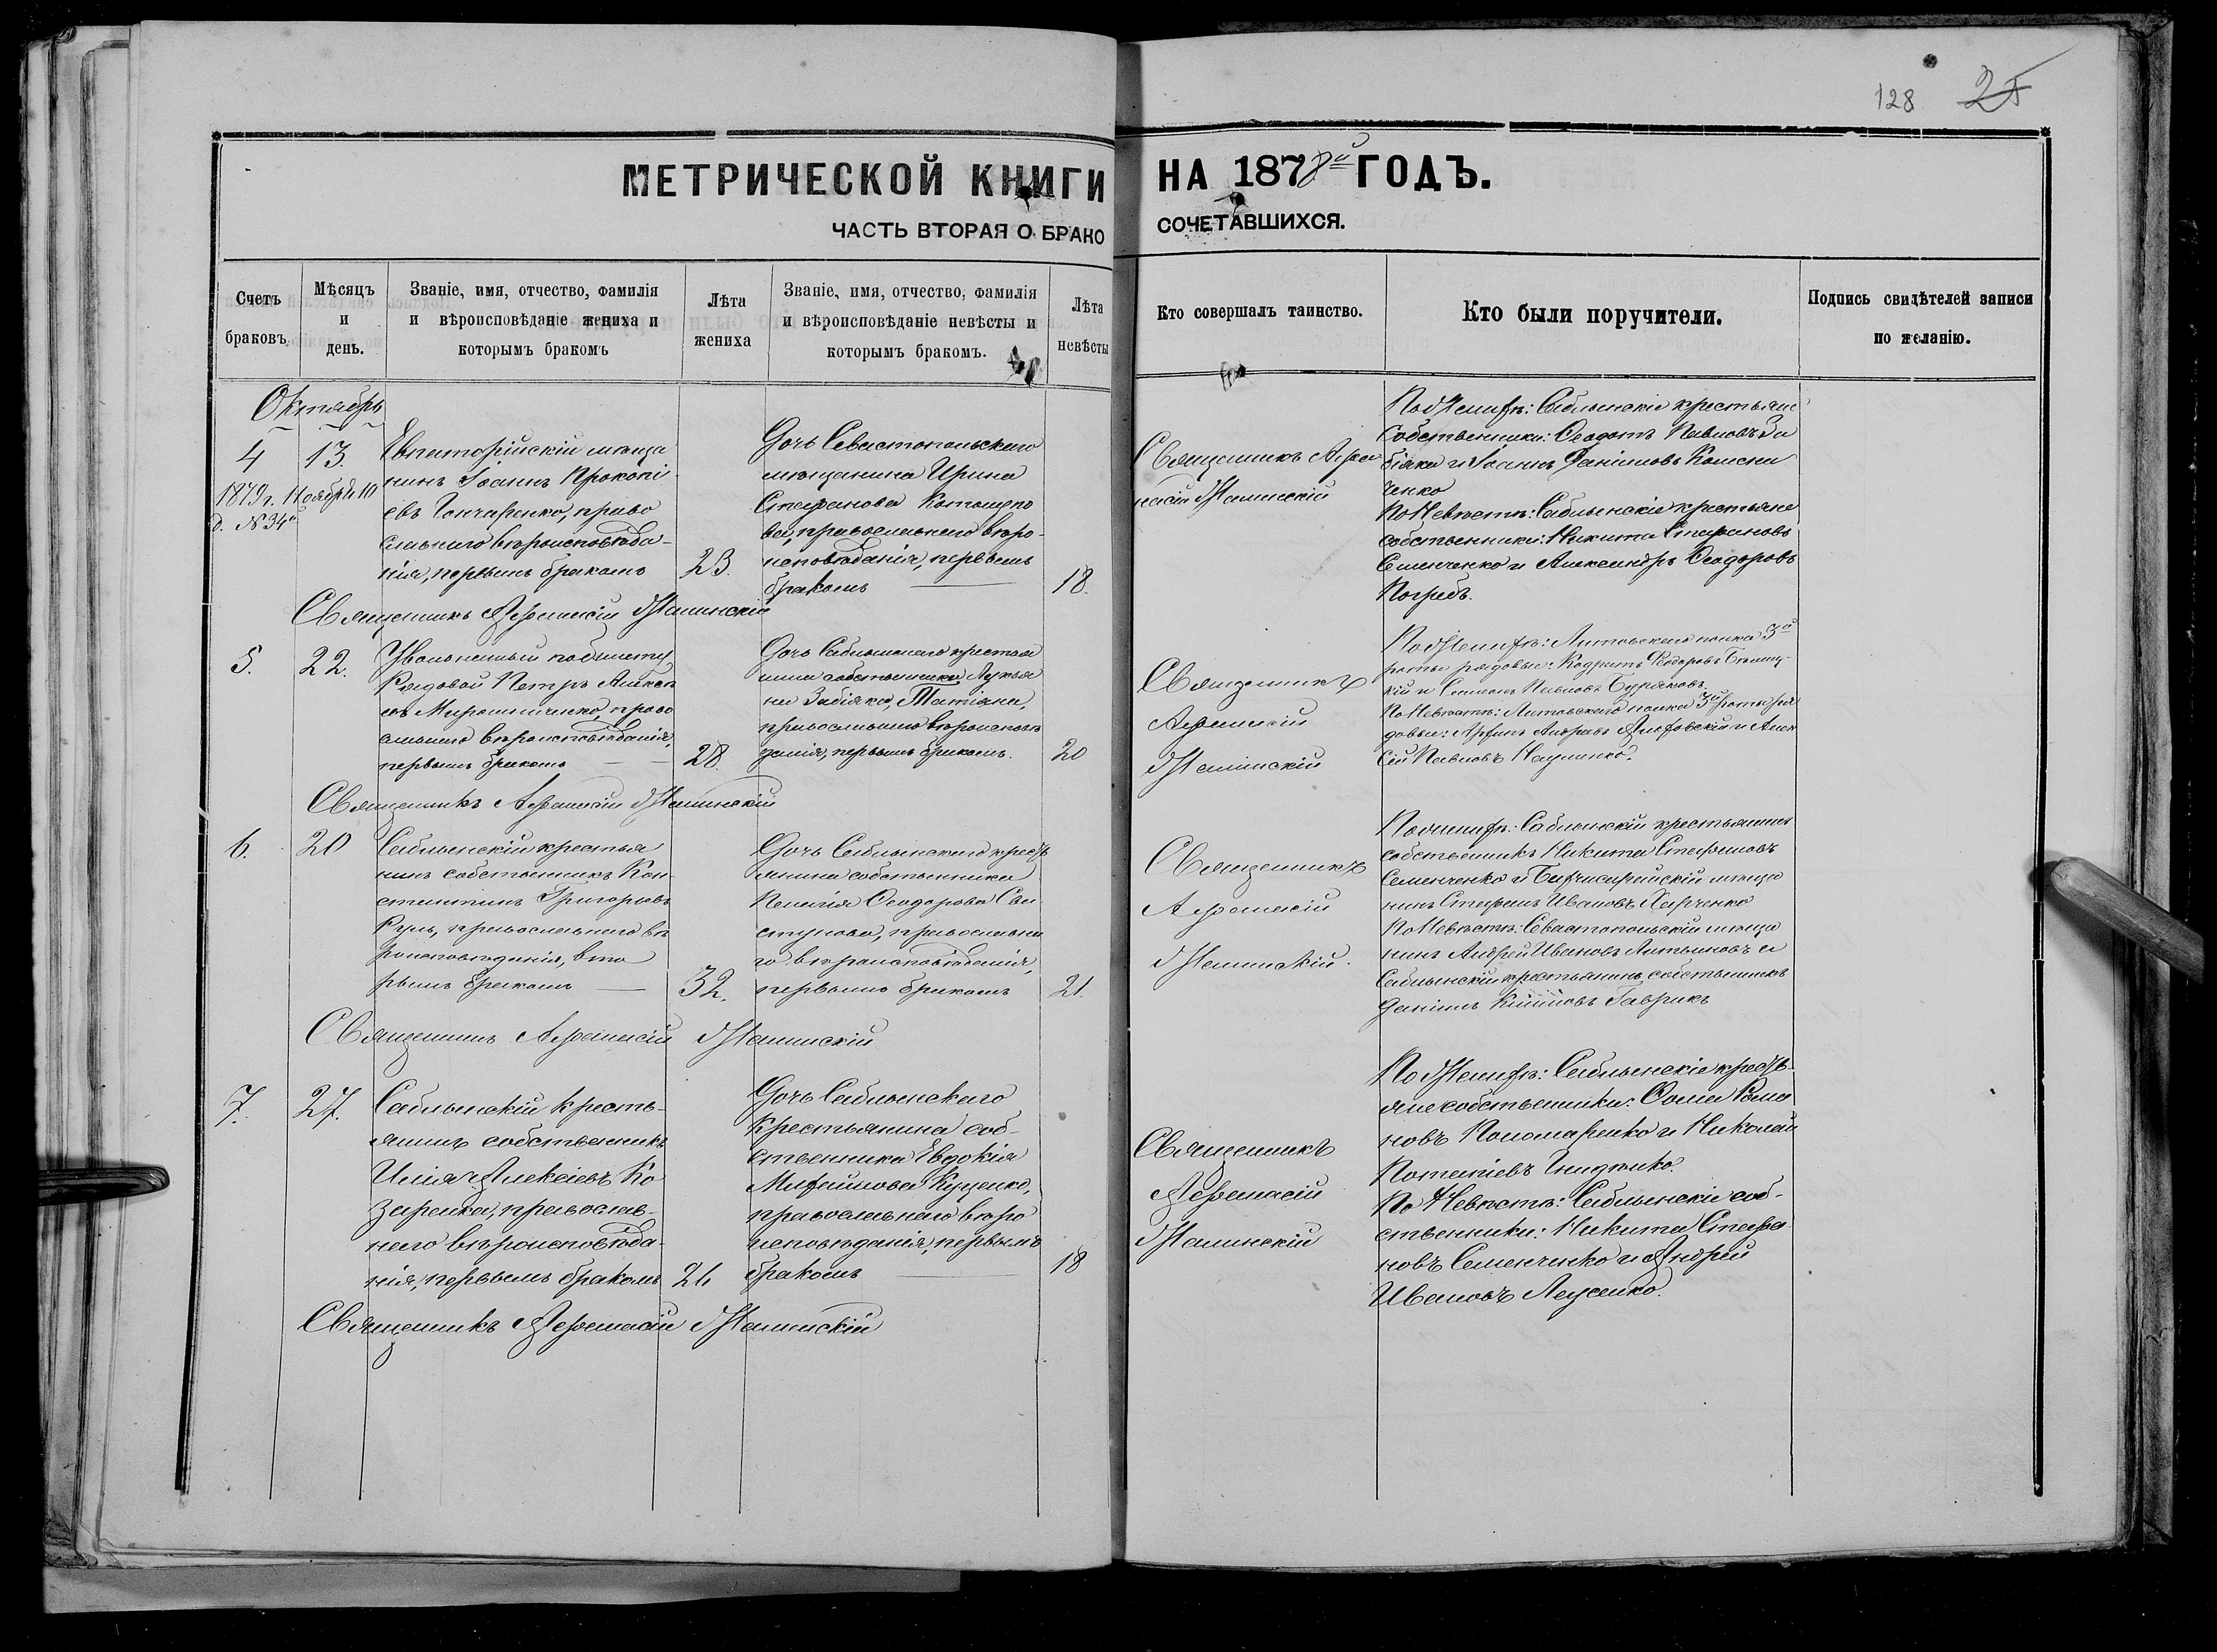 128 25
МЕТРИЧЕСКОЙ КНИГИ НА 1878й ГОДЪ.
ЧАСТЬ ВТОРАЯ О БРАКО СОЧЕТАВШИХСЯ.
Счетъ браковъ.
Мѣсяцъ и день.
Званіе, имя, отчество, фамилія и вѣроисповѣданіе жениха и которымъ бракомъ
Лѣта жениха
Званіе, имя, отчество, фамилія и вѣроисповѣданіе невѣсты и которымъ бракомъ.
Лѣта невѣсты
Кто совершалъ таинство.
Кто были поручители.
Подпись свидѣтелей записи по желанію.
Октябрь
4 13.
1879 г. Ноября 10
д. № 34й
Евпаторійскій мѣща
нинъ Іоаннъ Прокопі
евъ Гончаренко, право
славнаго вѣроисповѣда-
нія, первымъ бракомъ 23.
Дочь Севастопольскаго
мѣщанина Ирина
Стефанова
ва, православнаго вѣро-
исповѣданія, первымъ
бракомъ 18.
Священникъ Афа
насій
По Женихѣ: Саблынскіе крестьяне
собственники: Ѳеодотъ Павловъ За
біяка и Іоаннъ Даніиловъ Колесни
ченко
По Невѣстѣ: Саблынскіе крестьяне
собственники: Никита Стефановъ
Семенченко и Александръ Ѳеодоровъ
Погребъ.
Священникъ Афанасій
5. 22.
Увольненный по билету
Рядовой Петръ Алексѣ
евъ Мирошниченко, право
славнаго вѣроисповѣданія,
первымъ бракомъ 28.
Дочь Саблынскаго крестья
нина собственника Лукья
на Забіяки, Татіана,
православнаго вѣроисповѣ
данія, первымъ бракомъ. 20
Священникъ
Афанасій
По Женихѣ: Литовскаго полка 3й
роты рядовые: Кодратъ Ѳедоровъ
кій и Симеонъ Павловъ Буряковъ.
По Невѣстѣ: Литовскаго полка 3й роты ря
довые: и Алек
сій Павловъ Науменко.
Священникъ Афанасій
6. 20
Саблынскій крестья
нинъ собственникъ Кон
стантинъ Григорьевъ
Руль, православнаго вѣ
роисповѣданія, вто
рымъ бракомъ 32.
Дочь Саблынскаго кресть
янина собственника
Пелагія Ѳеодорова Сви
стунова, православна
го вѣроисповѣданія,
первымъ бракомъ 21.
Священникъ
Афанасій
По женихѣ: Саблынскій крестьянинъ
собственникъ Никита Стефановъ
Семенченко и Бахчисарайскій мѣща
нинъ Стефанъ Ивановъ Харченко
По Невѣстѣ: Севастопольскій мѣща
нинъ Андрей Ивановъ Литвиновъ и
Саблынскій крестьянинъ собственникъ
Даніилъ Гаврикъ
Священникъ Афанасій
7. 27.
Саблынскій кресть-
янинъ собственникъ
Илія Алексіевъ Ко
заренко, православ-
наго вѣроисповѣда-
нія, первымъ бракомъ 24
Дочь Саблынскаго
крестьянина соб-
ственника Евдокія
Михайлова Куценко,
православнаго вѣро
исповѣданія, первымъ
бракомъ 18
Священникъ
Афанасій
По Женихѣ: Саблынскіе кресть-
яне собственники: Ѳома Рома
новъ Пономаренко и Николай
Потапіевъ Гниденко.
По Невѣстѣ: Саблынскіе соб-
ственники: Никита Стефа
новъ Семенченко и Андрей
Ивановъ Луценко.
Священникъ Афанасій